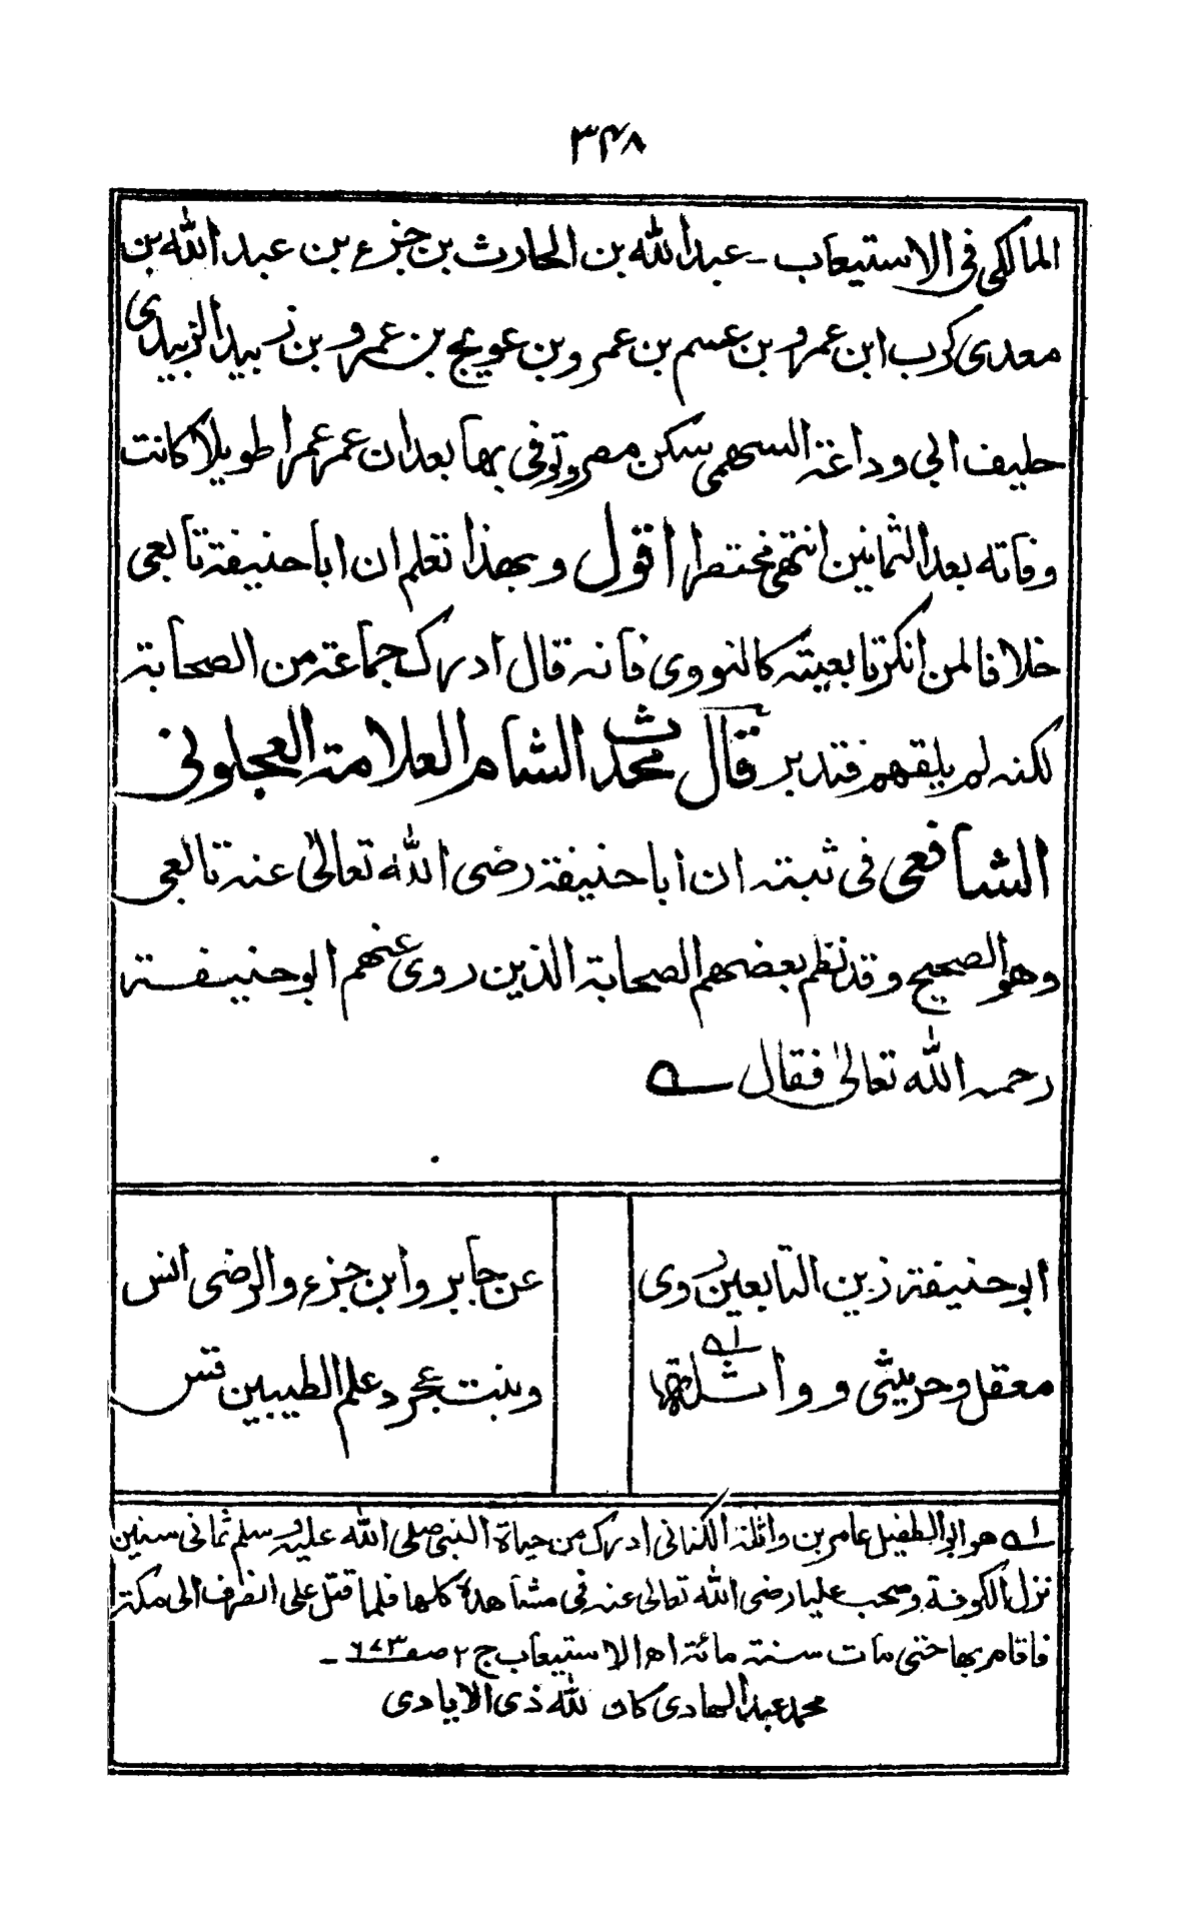 ۳۴۸
المالكى فى الاستيعاب - عبدالله بن الحارث بن جزء بن عبدالله بن
معدى كرب ابن عمرو بن عسم بن عمرو بن عويج بن عمرو بن زبيد الزبيدى
حليف ابى وداعة السهمى سكن مصر وتوفى بها بعد ان عمر عمرا طويلا كانت
وفاته بعد الثمانين انتهى مختصرا اقول وبهذا تعلم ان ابا حنيفة تابعى
خلافا لمن انكر تابعيته كالنووى فانه قال ادرك جماعة من الصحابة
لكنه لم يلقهم فتدبر قال محدث الشام العلامة العجلونى
الشافعى فى ثبته ان ابا حنيفة رضى الله تعالى عنه تابعى
وهو الصحيح وقد نظم بعضهم الصحابة الذين روى عنهم ابو حنيفة
رحمه الله تعالى فقال ـه
أبو حنيفة زين التابعين روى عن جابر وابن جزء والرضى انس
معقل وحريثى وواثلة له وبنت عجرد علم الطيبين قس
له هو ابو الطفيل عامر بن واثلة الكنانى ادرك من حياة النبى صلى الله عليه وسلم ثمانى سنين
نزل الكوفة وصحب عليا رضى الله تعالى عنه فى مشاهده كلها فلما قتل على انصرف الى مكة
فاقام بها حتى مات سنة مائة اه الاستيعاب ج ۲ صـ ۶۷۳ -
محمد عبد الهادى كان لله ذى الايادى